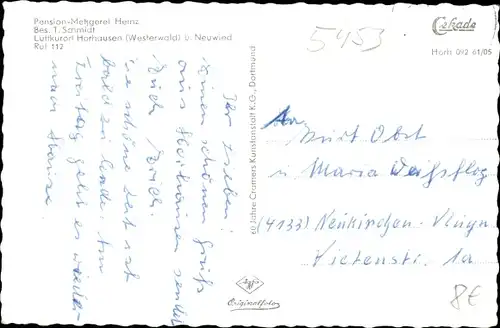 Pension-Metzgerei Heinz
Bes. T. Schmidt
Luftkurort Horhausen (Westerwald) ü. Neuwied
Ruf 112
5453
Cekade
Horh 092 61/05
Ihr Lieben!
Einen schönen Gruß
aus Horhausen sendet
Euch Erich.
die schöne Zeit ist
bald zu Ende. Am
Freitag geht es wieder
nach Hause.
60 Jahre Cramers Kunstanstalt K.G., Dortmund
An
Kurt Obst
u Maria Weißflog
(4133) Neukirchen-Vluyn
Vietenstr. 1a
Originalfoto
8€